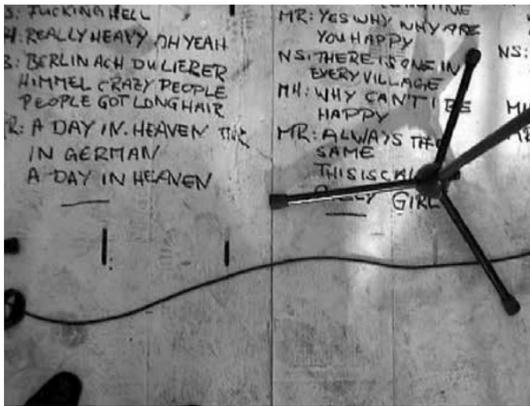 S: FUCKING HELL
H: REALLY HEAVY OH YEAH
B: BERLIN ACH DU LIEBER
HIMMEL CRAZY PEOPLE
PEOPLE GOT LONG HAIR
R: A DAY IN HEAVEN
IN GERMAN
A DAY IN HEAVEN
MR: YES WHY WHY ARE
YOU HAPPY
NS: THERE IS ONE IN
EVERY VILLAGE
MH: WHY CAN'T I BE
HAPPY
MR: ALWAYS THE
SAME
THIS IS
GIRL
NS: